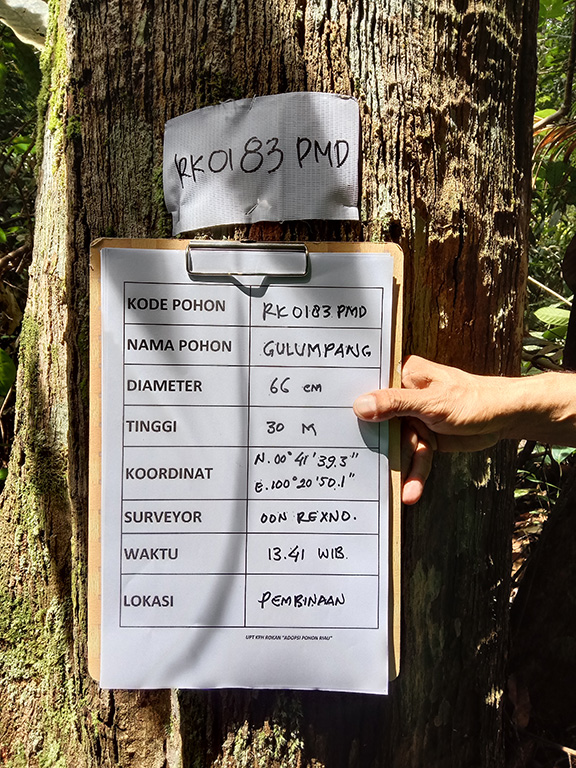 RK0183 PMD
KODE POHON RK0183 PMD
NAMA POHON GULUMPANG
DIAMETER 66 cm
TINGGI 30 M
KOORDINAT N. 00° 41' 39.3"
E. 100° 20' 50.1"
SURVEYOR OON REXNO.
WAKTU 13.41 WIB.
LOKASI PEMBINAAN
UPT KPH ROKAN "ADOPSI POHON RIAU"